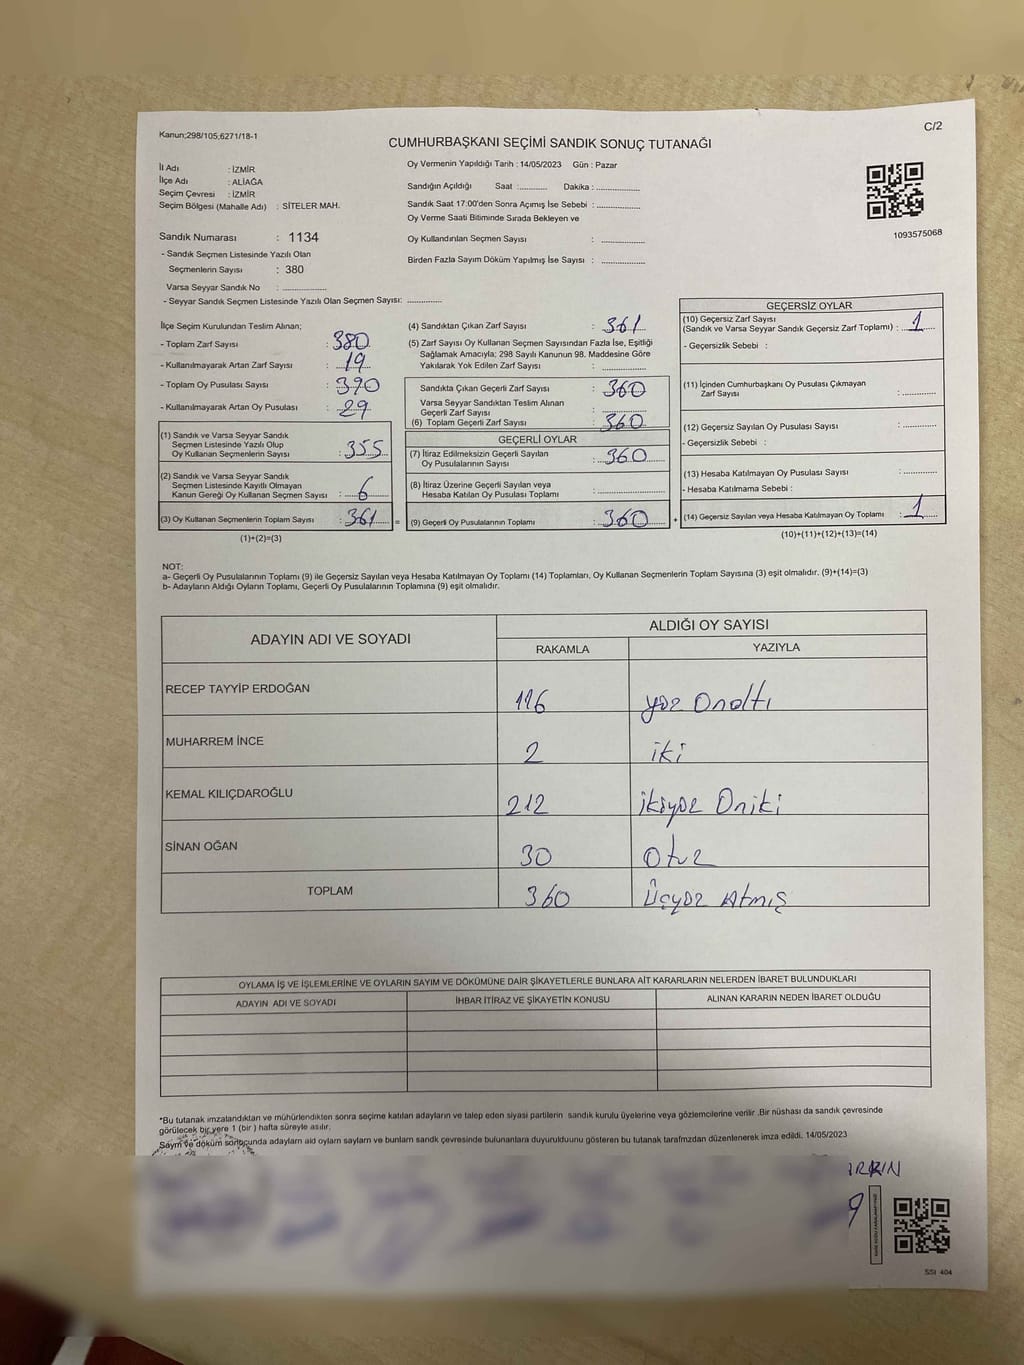 Kanun;298/105,6271/18-1
C/2
CUMHURBAŞKANI SEÇİMİ SANDIK SONUÇ TUTANAĞI
İl Adı : İZMİR
İlçe Adı : ALİAĞA
Seçim Çevresi : İZMİR
Seçim Bölgesi (Mahalle Adı) : SİTELER MAH.
Sandık Numarası : 1134
- Sandık Seçmen Listesinde Yazılı Olan
Seçmenlerin Sayısı : 380
Varsa Seyyar Sandık No : ............
- Seyyar Sandık Seçmen Listesinde Yazılı Olan Seçmen Sayısı: ............
Oy Vermenin Yapıldığı Tarih : 14/05/2023 Gün : Pazar
Sandığın Açıldığı Saat : ............ Dakika : ............
Sandık Saat 17:00'den Sonra Açımış İse Sebebi : ............
Oy Verme Saati Bitiminde Sırada Bekleyen ve
Oy Kullandırılan Seçmen Sayısı : ............
Birden Fazla Sayım Döküm Yapılmış İse Sayısı : ............
1093575068
İlçe Seçim Kurulundan Teslim Alınan;
- Toplam Zarf Sayısı : 380
- Kullanılmayarak Artan Zarf Sayısı : 19
- Toplam Oy Pusulası Sayısı : 390
- Kullanılmayarak Artan Oy Pusulası : 29
(1) Sandık ve Varsa Seyyar Sandık
Seçmen Listesinde Yazılı Olup
Oy Kullanan Seçmenlerin Sayısı : 355
(2) Sandık ve Varsa Seyyar Sandık
Seçmen Listesinde Kayıtlı Olmayan
Kanun Gereği Oy Kullanan Seçmen Sayısı : 6
(3) Oy Kullanan Seçmenlerin Toplam Sayısı : 361 =
(1)+(2)=(3)
(4) Sandıktan Çıkan Zarf Sayısı : 361
(5) Zarf Sayısı Oy Kullanan Seçmen Sayısından Fazla İse, Eşitliği
Sağlamak Amacıyla; 298 Sayılı Kanunun 98. Maddesine Göre
Yakılarak Yok Edilen Zarf Sayısı : ............
Sandıkta Çıkan Geçerli Zarf Sayısı : 360
Varsa Seyyar Sandıktan Teslim Alınan
Geçerli Zarf Sayısı : ............
(6) Toplam Geçerli Zarf Sayısı : 360
GEÇERLİ OYLAR
(7) İtiraz Edilmeksizin Geçerli Sayılan
Oy Pusulalarının Sayısı : 360
(8) İtiraz Üzerine Geçerli Sayılan veya
Hesaba Katılan Oy Pusulası Toplamı : ............
(9) Geçerli Oy Pusulalarının Toplamı : 360 +
GEÇERSİZ OYLAR
(10) Geçersiz Zarf Sayısı
(Sandık ve Varsa Seyyar Sandık Geçersiz Zarf Toplamı) : 1
- Geçersizlik Sebebi :
(11) İçinden Cumhurbaşkanı Oy Pusulası Çıkmayan
Zarf Sayısı : ............
(12) Geçersiz Sayılan Oy Pusulası Sayısı : ............
- Geçersizlik Sebebi :
(13) Hesaba Katılmayan Oy Pusulası Sayısı : ............
- Hesaba Katılmama Sebebi :
(14) Geçersiz Sayılan veya Hesaba Katılmayan Oy Toplamı : 1
(10)+(11)+(12)+(13)=(14)
NOT:
a- Geçerli Oy Pusulalarının Toplamı (9) ile Geçersiz Sayılan veya Hesaba Katılmayan Oy Toplamı (14) Toplamları, Oy Kullanan Seçmenlerin Toplam Sayısına (3) eşit olmalıdır. (9)+(14)=(3)
b- Adayların Aldığı Oyların Toplamı, Geçerli Oy Pusulalarının Toplamına (9) eşit olmalıdır.
ADAYIN ADI VE SOYADI ALDIĞI OY SAYISI
RAKAMLA YAZIYLA
RECEP TAYYİP ERDOĞAN 116 yüz Onaltı
MUHARREM İNCE 2 iki
KEMAL KILIÇDAROĞLU 212 ikiyüz Oniki
SİNAN OĞAN 30 Otuz
TOPLAM 360 Üçyüz Atmış
OYLAMA İŞ VE İŞLEMLERİNE VE OYLARIN SAYIM VE DÖKÜMÜNE DAİR ŞİKAYETLERLE BUNLARA AİT KARARLARIN NELERDEN İBARET BULUNDUKLARI
ADAYIN ADI VE SOYADI İHBAR İTİRAZ VE ŞİKAYETİN KONUSU ALINAN KARARIN NEDEN İBARET OLDUĞU
*Bu tutanak imzalandıktan ve mühürlendikten sonra seçime katılan adayların ve talep eden siyasi partilerin sandık kurulu üyelerine veya gözlemcilerine verilir .Bir nüshası da sandık çevresinde
görülecek bir yere 1 (bir ) hafta süreyle asılır.
Sayım ve döküm sonucunda adayların aid oyların sayların ve bunların sandık çevresinde bulunanlara duyurulduunu gösteren bu tutanak tarafımzdan düzenlenerek imza edildi. 14/05/2023
SSI 404